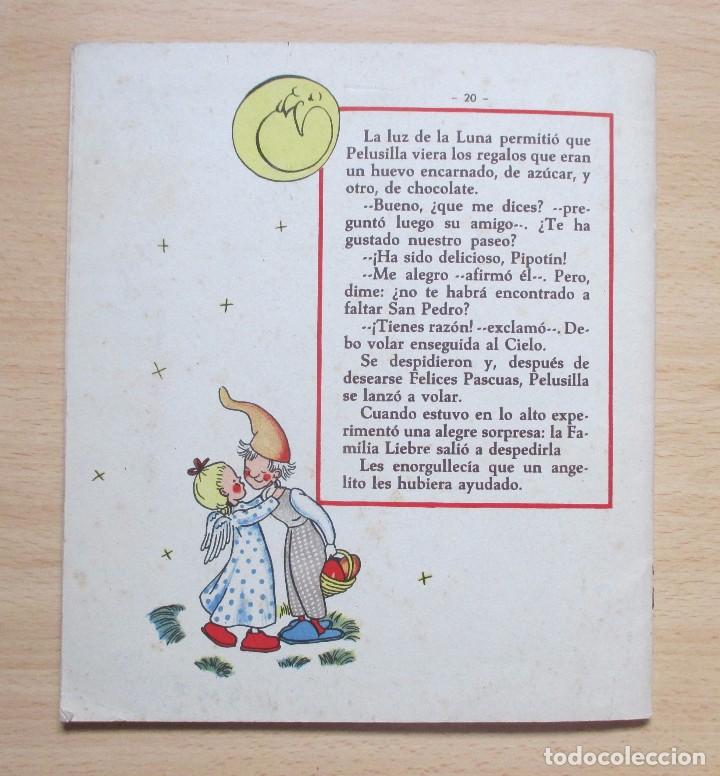 - 20 -
La luz de la Luna permitió que
Pelusilla viera los regalos que eran
un huevo encarnado, de azúcar, y
otro, de chocolate.
--Bueno, ¿que me dices? --pre-
guntó luego su amigo--. ¿Te ha
gustado nuestro paseo?
--¡Ha sido delicioso, Pipotín!
--Me alegro --afirmó él--. Pero,
dime: ¿no te habrá encontrado a
faltar San Pedro?
--¡Tienes razón! --exclamó--. De-
bo volar enseguida al Cielo.
Se despidieron y, después de
desearse Felices Pascuas, Pelusilla
se lanzó a volar.
Cuando estuvo en lo alto expe-
rimentó una alegre sorpresa: la Fa-
milia Liebre salió a despedirla
Les enorgullecía que un ange-
lito les hubiera ayudado.
todocoleccion